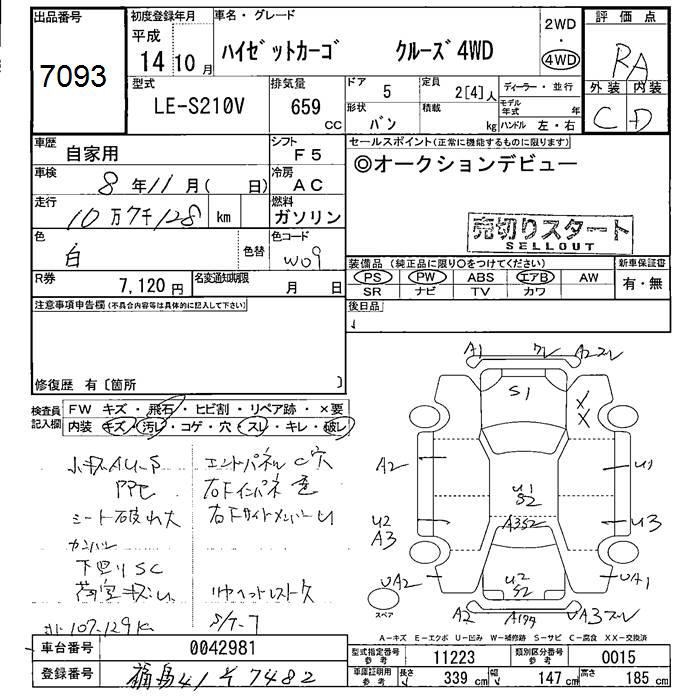 出品番号
7093
初度登録年月
平成
14年10月
車名・グレード
ハイゼットカーゴ クルーズ 4WD
2WD
・
4WD
評価点
RA
外装 内装
C D
型式
LE-S210V
排気量
659
CC
ドア 5
定員 2[4]人
形状 バン
積載 kg
ディーラー・並行
モデル年式 年
ハンドル 左・右
車歴 自家用
シフト F5
車検 8年11月( 日)
冷房 AC
走行 10万7千128 km
燃料 ガソリン
色 白
色替
色コード W09
R券 7,120円
名変通知期限 月 日
セールスポイント(正常に機能するものに限ります)
◎オークションデビュー
売切りスタート
SELLOUT
装備品(純正品に限り〇をつけてください)
PS PW ABS エアB AW
SR ナビ TV カワ
新車保証書
有・無
後日品
注意事項申告欄(不具合内容等は具体的に記入して下さい)
修復歴 有〔箇所 〕
検査員記入欄
FW キズ・飛石・ヒビ割・リペア跡・×要
内装 キズ・汚レ・コゲ・穴・スレ・キレ・破レ
小キズAU-S
シート破れ大
下回りSC
荷室キズU
エンドパネルC穴
右Fインパネ歪
右FサイドメンバーU
リヤヘッドレスト欠
S/T-7
107-129K
A1
A2
S1
X
X
A2
U1
U1
S2
U2
A3
A3S2
U3
UA2
U2
S2
UA1
A2
スペア
A-キズ E-エクボ U-凹み W-補修跡 S-サビ C-腐食 XX-交換済
車台番号 0042981
登録番号 福島41そ7482
型式指定番号 参考 11223
類別区分番号 参考 0015
車庫証明用 参考 長さ 339cm 幅 147cm 高さ 185cm